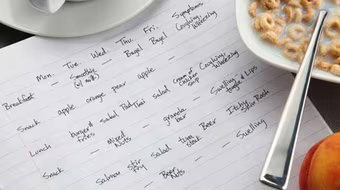 Mon. Tue. Wed. Thu. Fri. Symptoms
Breakfast — Smoothie (w/ milk) — Bagel Bagel Coughing, Wheezing
Snack apple orange pear apple —
Lunch burger & fries salad Pad Thai salad Cream of soup Coughing, Wheezing
Snack — Mixed Nuts — granola bar — Swelling tongue & Lips
Salmon stir fry Salad steak Beer Itchy Skin Rash
— — — Beer Nuts — Swelling